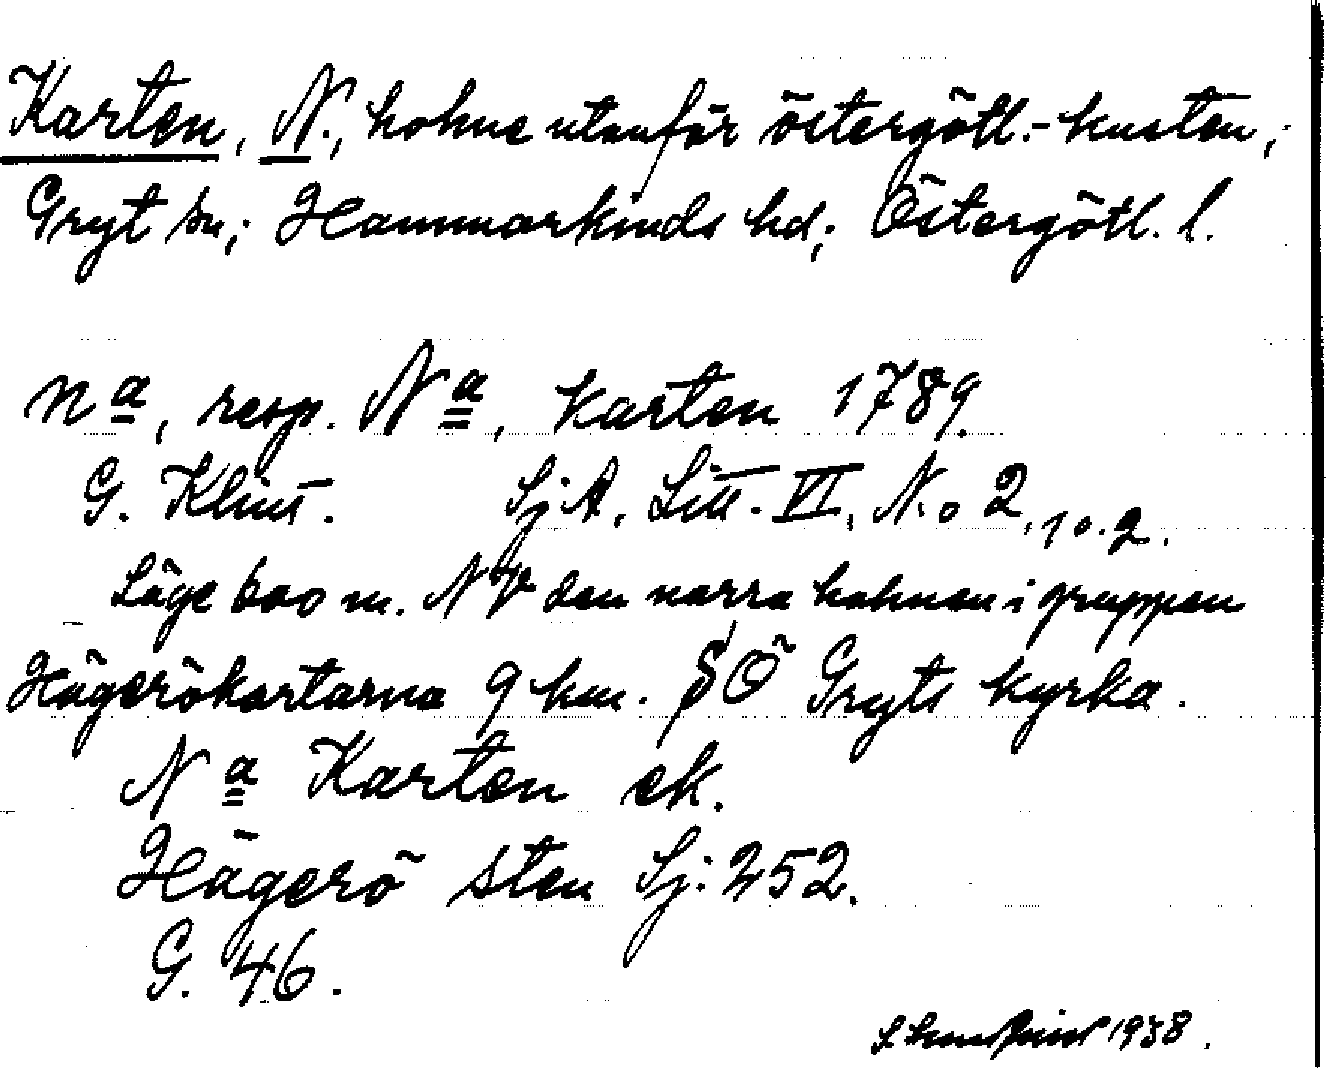 Karten, N., holme utanför östergötl.-kusten,
Gryt sn; Hammarkinds hd; Östergötl. l.
Na, resp. Na, Karten 1789.
G. Klint. Sj.A. Litt. VI, No 2, 10.2.
Läge 600 m. NV den norra holmen i gruppen
Hägerökartarna 9 km. SÖ Gryts kyrka.
Na Karten ek.
Hägerö sten Sj: 252.
G. 46.
1938.